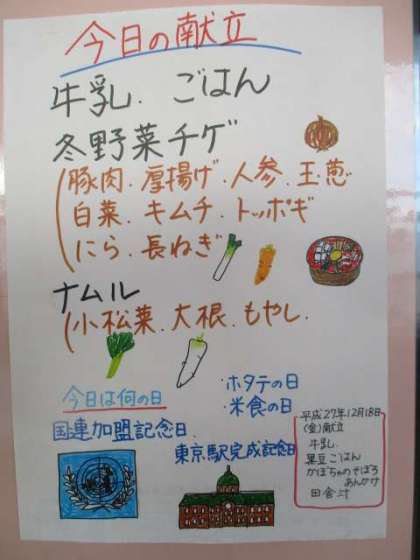 今日の献立
牛乳. ごはん
冬野菜チゲ
(豚肉.厚揚げ.人参.玉葱
白菜.キムチ.トッポギ
にら.長ねぎ
ナムル
(小松菜.大根.もやし.
今日は何の日
・ホタテの日
・米食の日
国連加盟記念日
東京駅完成記念日
平成27年12月18日
(金)献立
牛乳.
黒豆ごはん
かぼちゃのそぼろ
あんかけ
田舎汁